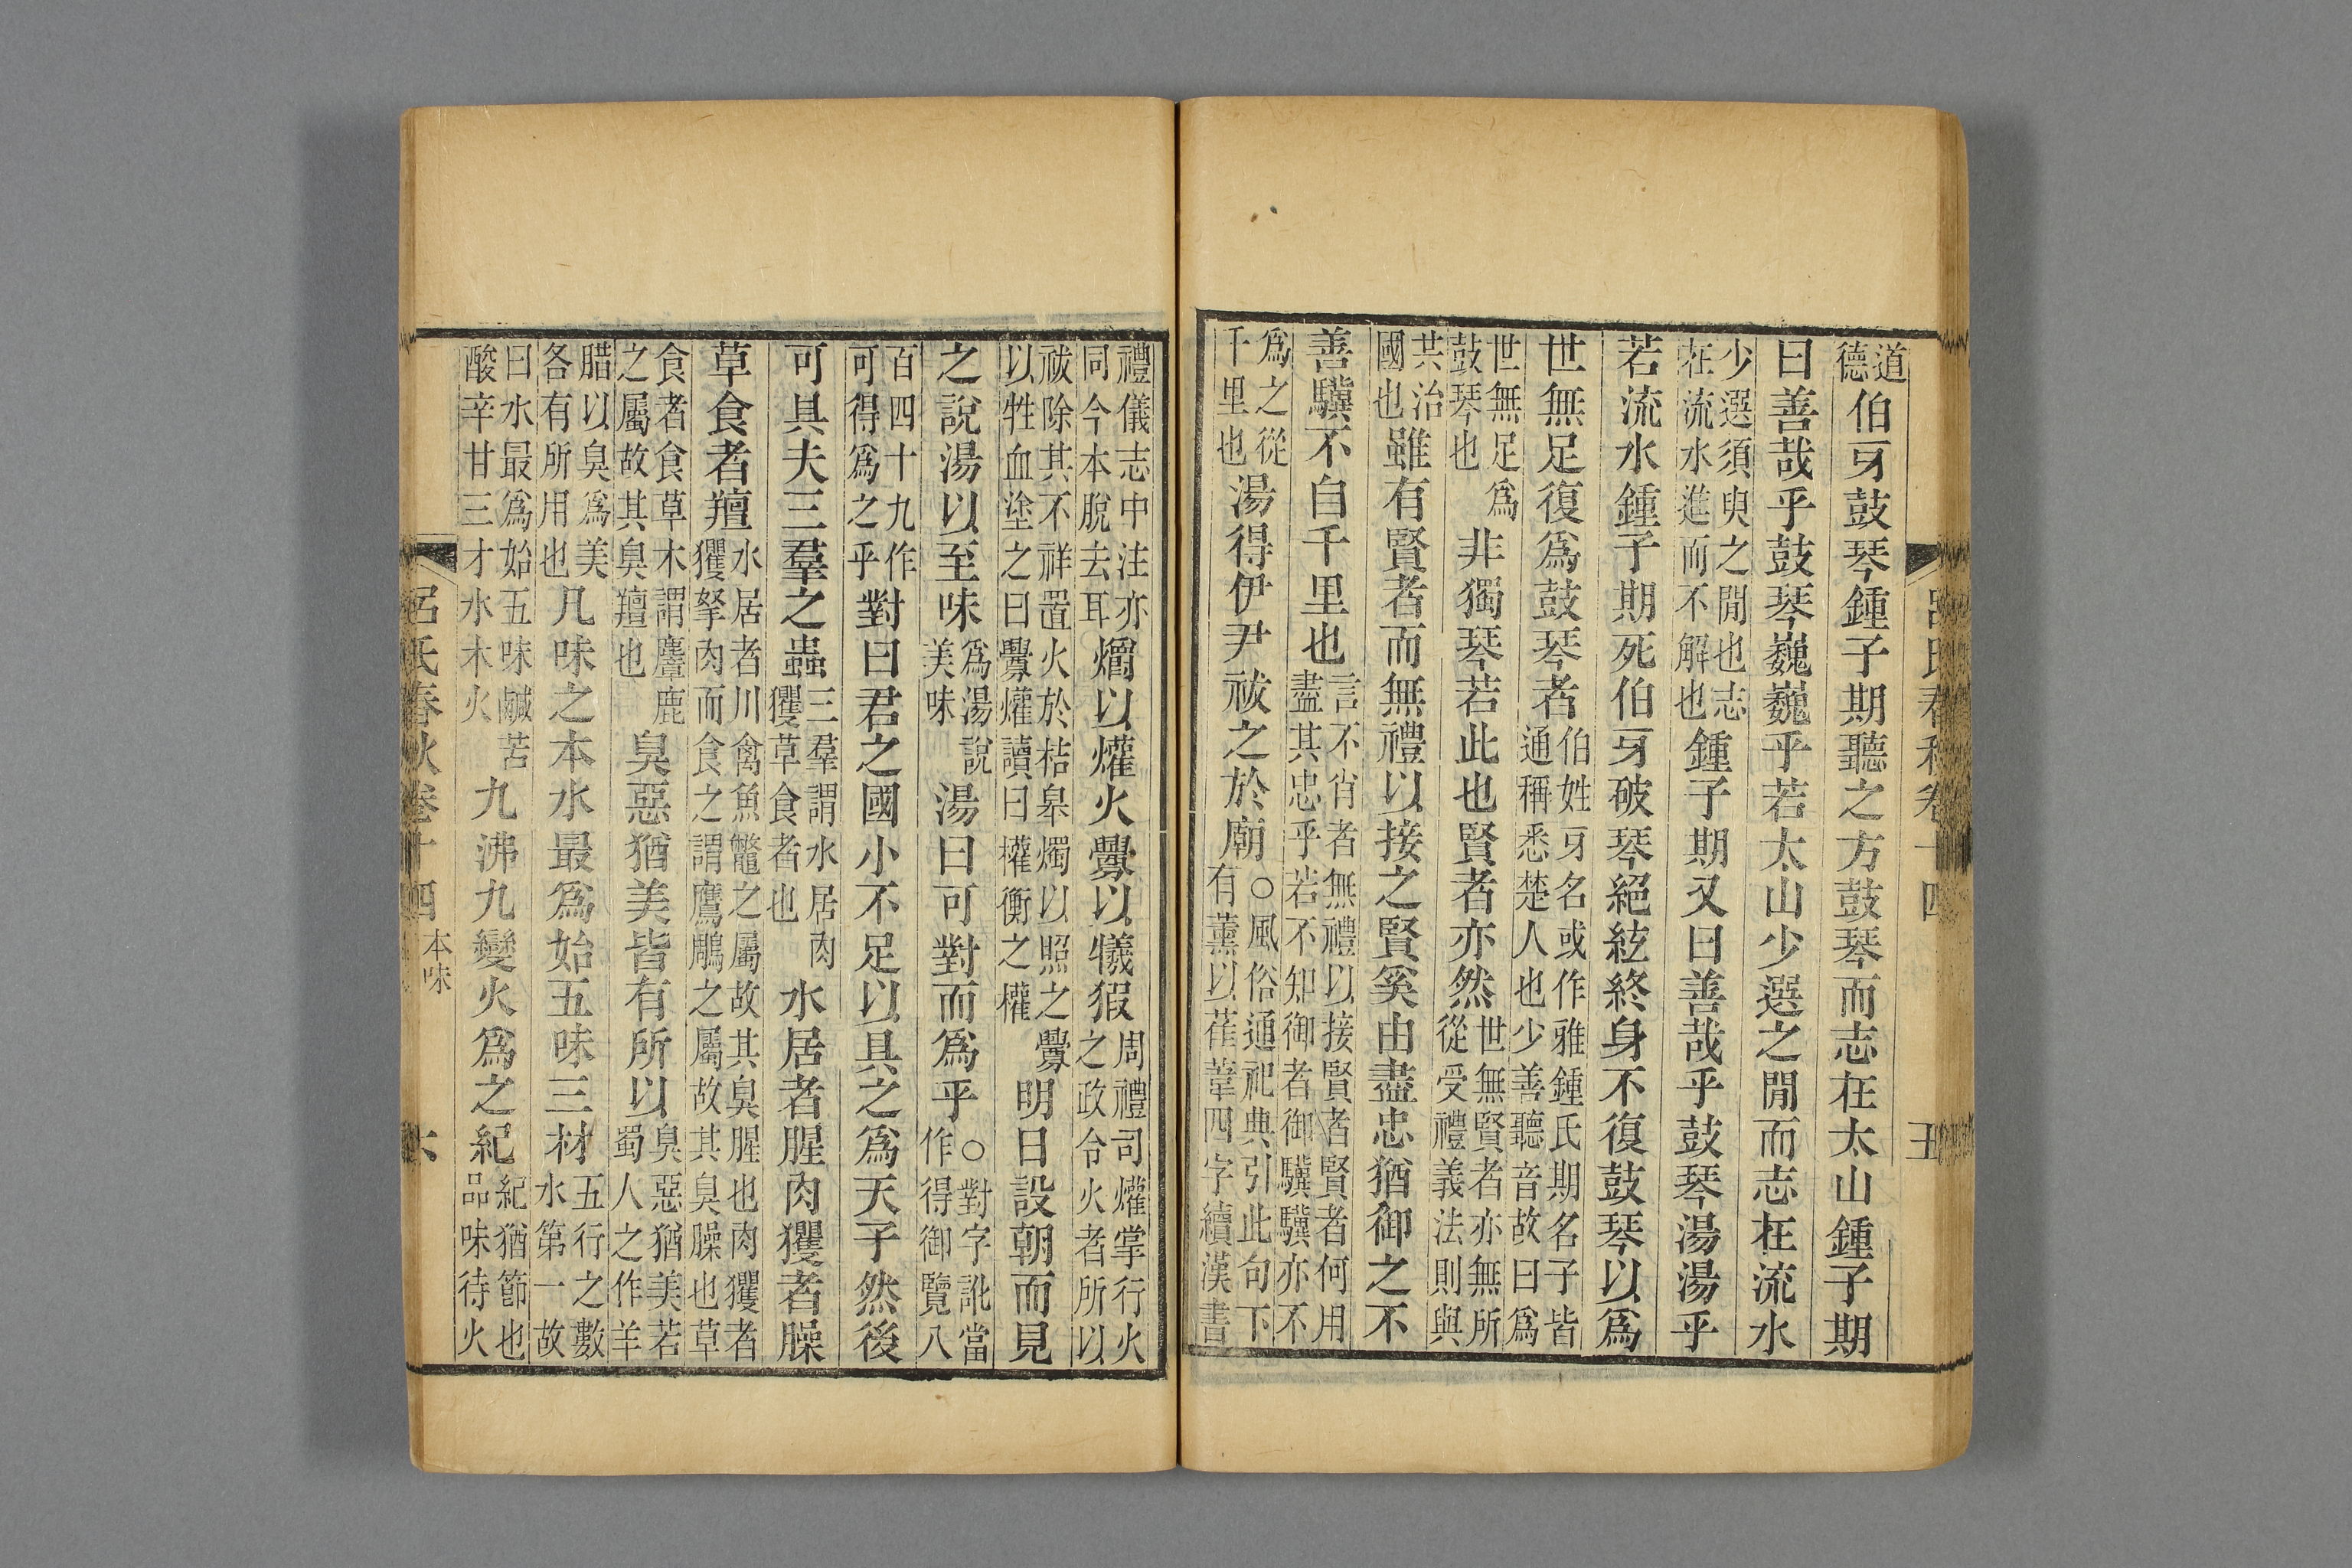 呂氏春秋卷十四 五
道德伯牙鼓琴鍾子期聽之方鼓琴而志在太山鍾子期
曰善哉乎鼓琴巍巍乎若太山少選之閒而志在流水
少選須臾之閒也志在流水進而不解也鍾子期又曰善哉乎鼓琴湯湯乎
若流水鍾子期死伯牙破琴絕絃終身不復鼓琴以爲
世無足復爲鼓琴者伯姓牙名或作雅鍾氏期名子皆通稱悉楚人也少善聽音故曰爲
世無足爲鼓琴也非獨琴若此也賢者亦然世無賢者亦無所從受禮義法則與
共治國也雖有賢者而無禮以接之賢奚由盡忠猶御之不
善驥不自千里也言不肖者無禮以接賢者賢者何用盡其忠乎若不知御者御驥驥亦不
爲之從千里也湯得伊尹祓之於廟○風俗通祀典引此句下有薰以萑葦四字續漢書
禮儀志中注亦同今本脫去耳爝以爟火釁以犧猳周禮司爟掌行火之政令火者所以
祓除其不祥置火於桔皋燭以照之釁以牲血塗之曰釁爟讀曰權衡之權明日設朝而見
之說湯以至味爲湯說美味湯曰可對而爲乎○對字訛當作得御覽八
百四十九作可得爲之乎對曰君之國小不足以具之爲天子然後
可具夫三羣之蟲三羣謂水居肉玃草食者也水居者腥肉玃者臊
草食者羶水居者川禽魚鼈之屬故其臭腥也肉玃者玃拏肉而食之謂鷹鵰之屬故其臭臊也草
食者食草木謂麞鹿之屬故其臭羶也臭惡猶美皆有所以臭惡猶美若蜀人之作羊
腊以臭爲美各有所用也凡味之本水最爲始五味三材五行之數水第一故
曰水最爲始五味鹹苦酸辛甘三才水木火九沸九變火爲之紀紀猶節也品味待火
呂氏春秋卷十四 本味 六